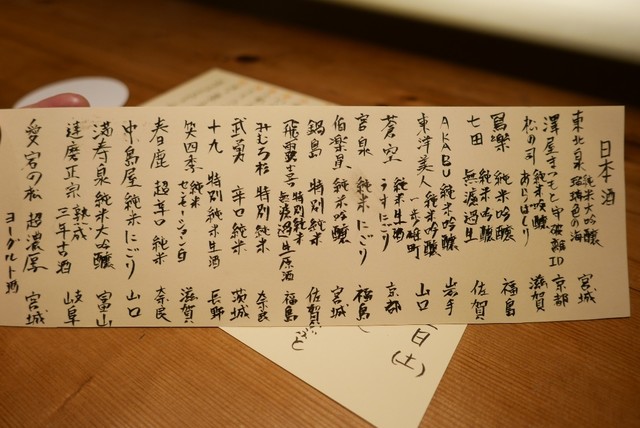 日本酒
東北泉 純米大吟醸 瑠璃色の海 宮城
澤屋まつもと 守破離ID 京都
松の司 純米吟醸 あらばしり 滋賀
寫樂 純米吟醸 福島
七田 純米吟醸 無濾過生 佐賀
AKABU 純米吟醸 岩手
東洋美人 純米吟醸 一歩 雄町 山口
蒼空 純米生酒 うすにごり 京都
宮泉 純米にごり 福島
伯楽星 純米吟醸 宮城
鍋島 特別純米 佐賀
飛露喜 特別純米 無濾過生原酒 福島
みむろ杉 特別純米 奈良
武勇 辛口純米 茨城
十九 特別純米生酒 長野
笑四季 純米 センセーション白 滋賀
春鹿 超辛口純米 奈良
中島屋 純米にごり 山口
満寿泉 純米大吟醸 富山
達磨正宗 熟成三年古酒 岐阜
愛宕の松 超濃厚ヨーグルト酒 宮城
日(土)